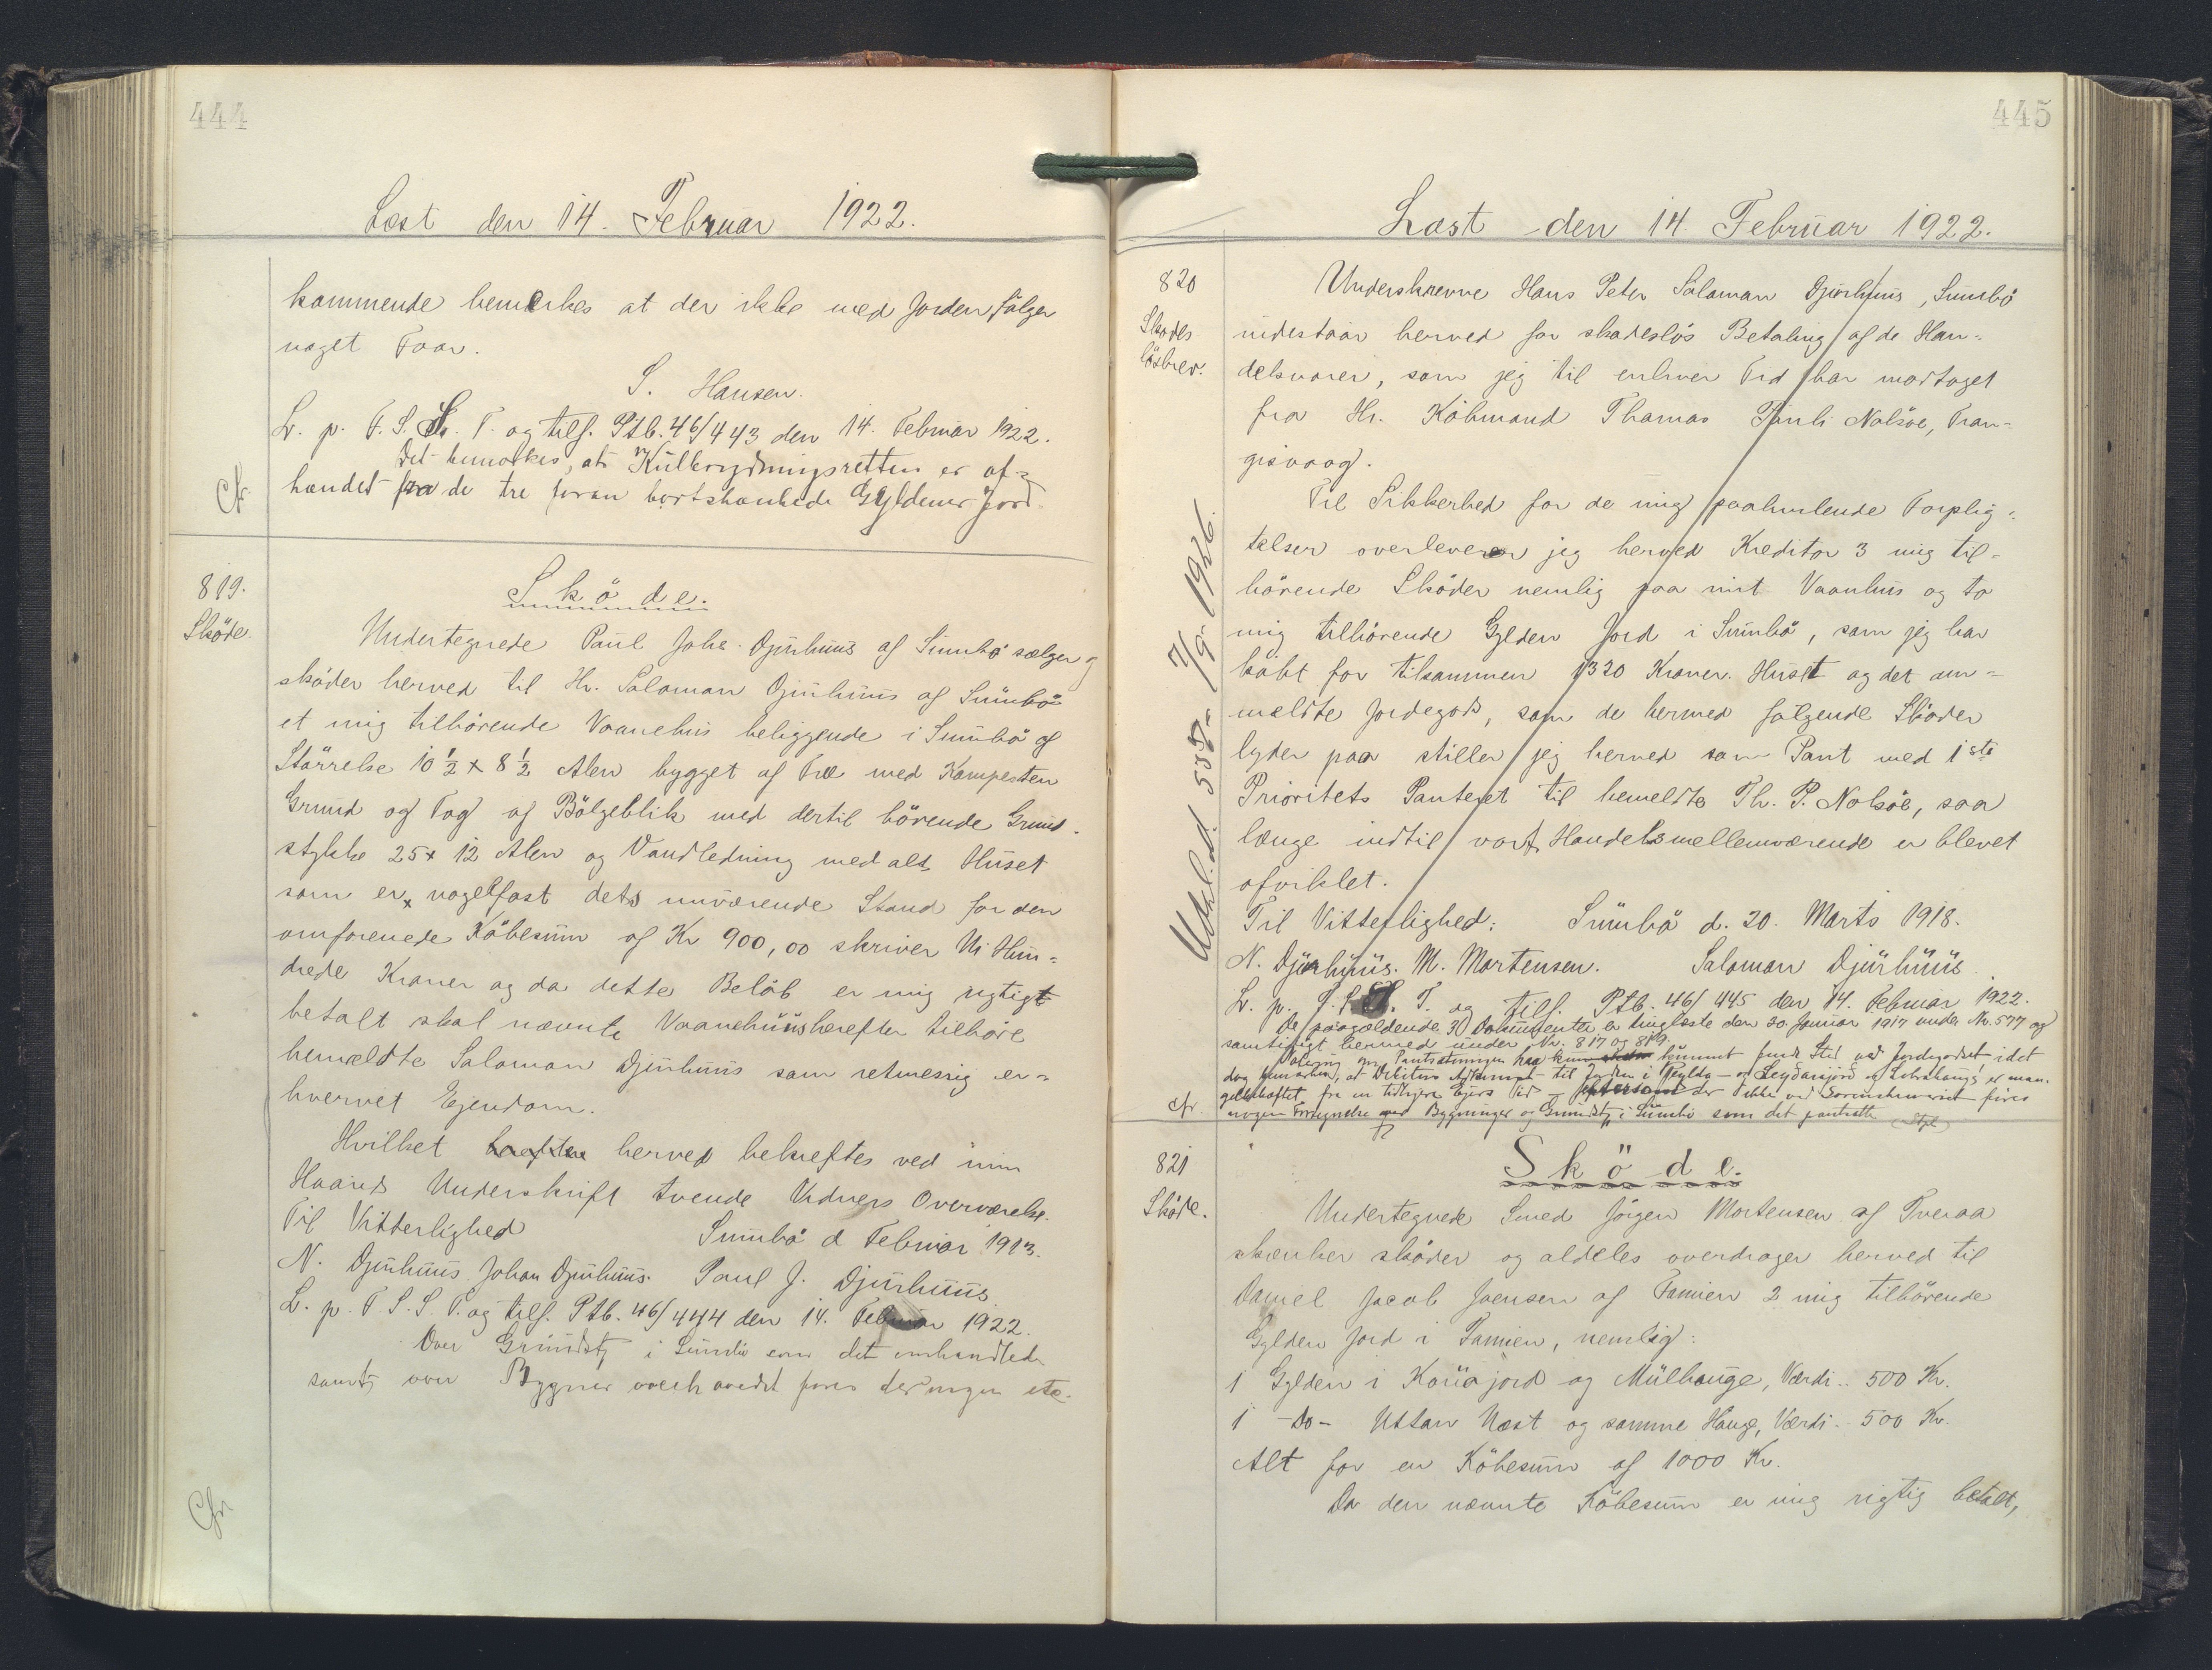 444
Læst den 14. Februar 1922.
kommende bemerkes at der ikke med Jorden fölger
noget Faar.
S. Hansen.
L. p. F. S. S. T. og tilf. Ptb. 46/443 den 14. Februar 1922.
Det bemærkes, at Kulbrydningsretten er af-
hændet fra de tre foran bortskænkede Gyldener Jord.
Cfr.
819.
Sköde.
Sköde.
Undertegnede Paul Johs. Djurhuus af Sumbö sælger og
sköder herved til Hr. Saloman Djurhuus af Sumbö
et mig tilhörende Vaanehus beliggende i Sumbö af
Störrelse 10 1/2 x 8 1/2 Alen bygget af Træ med Kampesten
Grund og Tag af Bölgeblik med dertil hörende Grund-
stykke 25 x 12 Alen og Vandledning med alt Huset
som er x nagelfast dets nuværende Stand for den
omforenede Köbesum af Kr 900,00 skriver Ni Hun-
drede Kroner og da dette Belöb er mig rigtigt
betalt skal nævnte Vaanehuus herefter tilhöre
bemældte Saloman Djurhuus som retmessig er-
hvervet Ejendom.
Hvilket herved bekreftes ved min
Haands Underskrift tvende Vidners Overværelse.
Til Vitterlighed
Sumbö d Februar 1913.
N. Djurhuus. Johan Djurhuus. Paul J. Djurhuus
L. p. F. S. S. T. og tilf. Ptb. 46/444 den 14. Februar 1922.
Over Grundst i Sumbö som det omhandlede
samt over Bygner overhovedet föres der ingen
Cfr
445
Læst den 14. Februar 1922.
820
Skades
lösbrev.
Underskrevne Hans Peter Saloman Djurhuus, Sumbö
indestaar herved for skadeslös Betaling af de Han-
delsvarer, som jeg til enhver Tid har modtaget
fra Hr. Köbmand Thomas Pauli Nolsöe, Tran-
gisvaag.
Til Sikkerhed for de mig paahvilende Forplig-
telser overleverer jeg herved Kreditor 3 mig til-
hörende Sköder nemlig paa mit Vaanhus og to
mig tilhörende Gylden Jord i Sumbö, som jeg har
köbt for tilsammen 1320 Kroner. Huset og det om-
meldte Jordegods, som de hermed fölgende Sköder
lyder paa stiller jeg herved som Pant med 1ste
Prioritets Panteret til bemeldte Th. P. Nolsöe, saa
længe indtil vort Handelsmellemværende er blevet
afviklet.
Til Vitterlighed: Sumbö d. 20. Marts 1918.
N. Djurhuus. M. Mortensen. Saloman Djurhuus.
L. p. F. S. S. T. og tilf. Ptb. 46/445 den 14. Februar 1922.
De paagældende 3 Dokumenter er tinglæste den 30. Januar 1917 under No. 577 og
samtidigt hermed under Nr. 817 og 819.
Udsl. d. 558- 7/9- 1926.
cfr.
821
Sköde.
Sköde.
Undertegnede Smed Jörgen Mortensen af Tveraa
skænker sköder og aldeles overdrager herved til
Daniel Jacob Joensen af Famien 2 mig tilhörende
Gylden Jord i Famien, nemlig:
1 Gylden i Koüajord og Mülhauge, Værdi .. 500 Kr.
1 -Do- Uttan Næst og samme Hauge, Værdi .. 500 Kr.
Alt for en Köbesum af 1000 Kr.
Da den nævnte Köbesum er mig rigtig betalt,